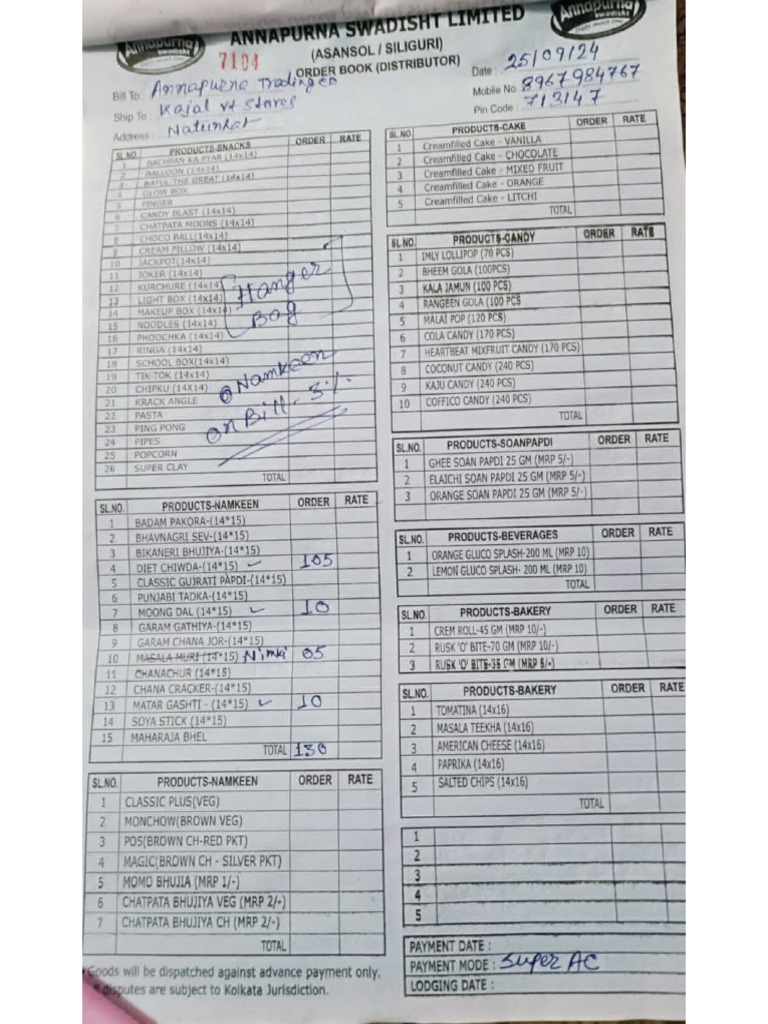 Annapurna
swadisht
ANNAPURNA SWADISHT LIMITED
Annapurna
swadisht
7104
(ASANSOL / SILIGURI)
ORDER BOOK (DISTRIBUTOR)
Bill To : Annapurna Trading co
Ship To : Kajal vt stores
Address : Natunhat
Date : 25/09/24
Mobile No. 8967984767
Pin Code : 713147
SL.NO. PRODUCTS-SNACKS ORDER RATE
1 BACHPAN KA PYAR (14x14)
2 BALLOON (14x14)
3 BATUL THE GREAT (14x14)
4 GLOW BOX
5 FINGER
6 CANDY BLAST (14x14)
7 CHATPATA MOONS (14x14)
8 CHOCO BALL(14x14)
9 CREAM PILLOW (14x14)
10 JACKPOT(14x14)
11 JOKER (14x14)
12 KURCHURE (14x14)
13 LIGHT BOX (14x14)
14 MAKEUP BOX (14x14)
15 NOODLES (14x14)
16 PHOOCHKA (14x14)
17 RINGA (14x14)
18 SCHOOL BOX(14x14)
19 TIK-TOK (14x14)
20 CHIPKU (14X14)
21 KRACK ANGLE
22 PASTA
23 PING PONG
24 PIPES
25 POPCORN
26 SUPER CLAY
TOTAL
Hanger
Bag
Namkeen
on Bill - 3%
SL.NO. PRODUCTS-NAMKEEN ORDER RATE
1 BADAM PAKORA-(14*15)
2 BHAVNAGRI SEV-(14*15)
3 BIKANERI BHUJIYA-(14*15)
4 DIET CHIWDA-(14*15) ✓ 105
5 CLASSIC GUJRATI PAPDI-(14*15)
6 PUNJABI TADKA-(14*15)
7 MOONG DAL (14*15) ✓ 10
8 GARAM GATHIYA-(14*15)
9 GARAM CHANA JOR-(14*15)
10 MASALA MURI (14*15) Nimki 05
11 CHANACHUR (14*15)
12 CHANA CRACKER-(14*15)
13 MATAR GASHTI - (14*15) ✓ 10
14 SOYA STICK (14*15)
15 MAHARAJA BHEL
TOTAL 130
SL.NO. PRODUCTS-NAMKEEN ORDER RATE
1 CLASSIC PLUS(VEG)
2 MONCHOW(BROWN VEG)
3 POS(BROWN CH-RED PKT)
4 MAGIC(BROWN CH - SILVER PKT)
5 MOMO BHUJIA (MRP 1/-)
6 CHATPATA BHUJIYA VEG (MRP 2/-)
7 CHATPATA BHUJIYA CH (MRP 2/-)
TOTAL
Goods will be dispatched against advance payment only.
disputes are subject to Kolkata Jurisdiction.
SL.NO PRODUCTS-CAKE ORDER RATE
1 Creamfilled Cake - VANILLA
2 Creamfilled Cake - CHOCOLATE
3 Creamfilled Cake - MIXED FRUIT
4 Creamfilled Cake - ORANGE
5 Creamfilled Cake - LITCHI
TOTAL
SL.NO. PRODUCTS-CANDY ORDER RATE
1 IMLY LOLLIPOP (70 PCS)
2 BHEEM GOLA (100PCS)
3 KALA JAMUN (100 PCS)
4 RANGEEN GOLA (100 PCS
5 MALAI POP (120 PCS)
6 COLA CANDY (170 PCS)
7 HEARTBEAT MIXFRUIT CANDY (170 PCS)
8 COCONUT CANDY (240 PCS)
9 KAJU CANDY (240 PCS)
10 COFFICO CANDY (240 PCS)
TOTAL
SL.NO. PRODUCTS-SOANPAPDI ORDER RATE
1 GHEE SOAN PAPDI 25 GM (MRP 5/-)
2 ELAICHI SOAN PAPDI 25 GM (MRP 5/-)
3 ORANGE SOAN PAPDI 25 GM (MRP 5/-)
SL.NO. PRODUCTS-BEVERAGES ORDER RATE
1 ORANGE GLUCO SPLASH-200 ML (MRP 10)
2 LEMON GLUCO SPLASH- 200 ML (MRP 10)
TOTAL
SL.NO. PRODUCTS-BAKERY ORDER RATE
1 CREM ROLL-45 GM (MRP 10/-)
2 RUSK 'O' BITE-70 GM (MRP 10/-)
3 RUSK 'O' BITE-35 GM (MRP 5/-)
SL.NO. PRODUCTS-BAKERY ORDER RATE
1 TOMATINA (14x16)
2 MASALA TEEKHA (14x16)
3 AMERICAN CHEESE (14x16)
4 PAPRIKA (14x16)
5 SALTED CHIPS (14x16)
TOTAL
1
2
3
4
5
PAYMENT DATE :
PAYMENT MODE : Super AC
LODGING DATE :